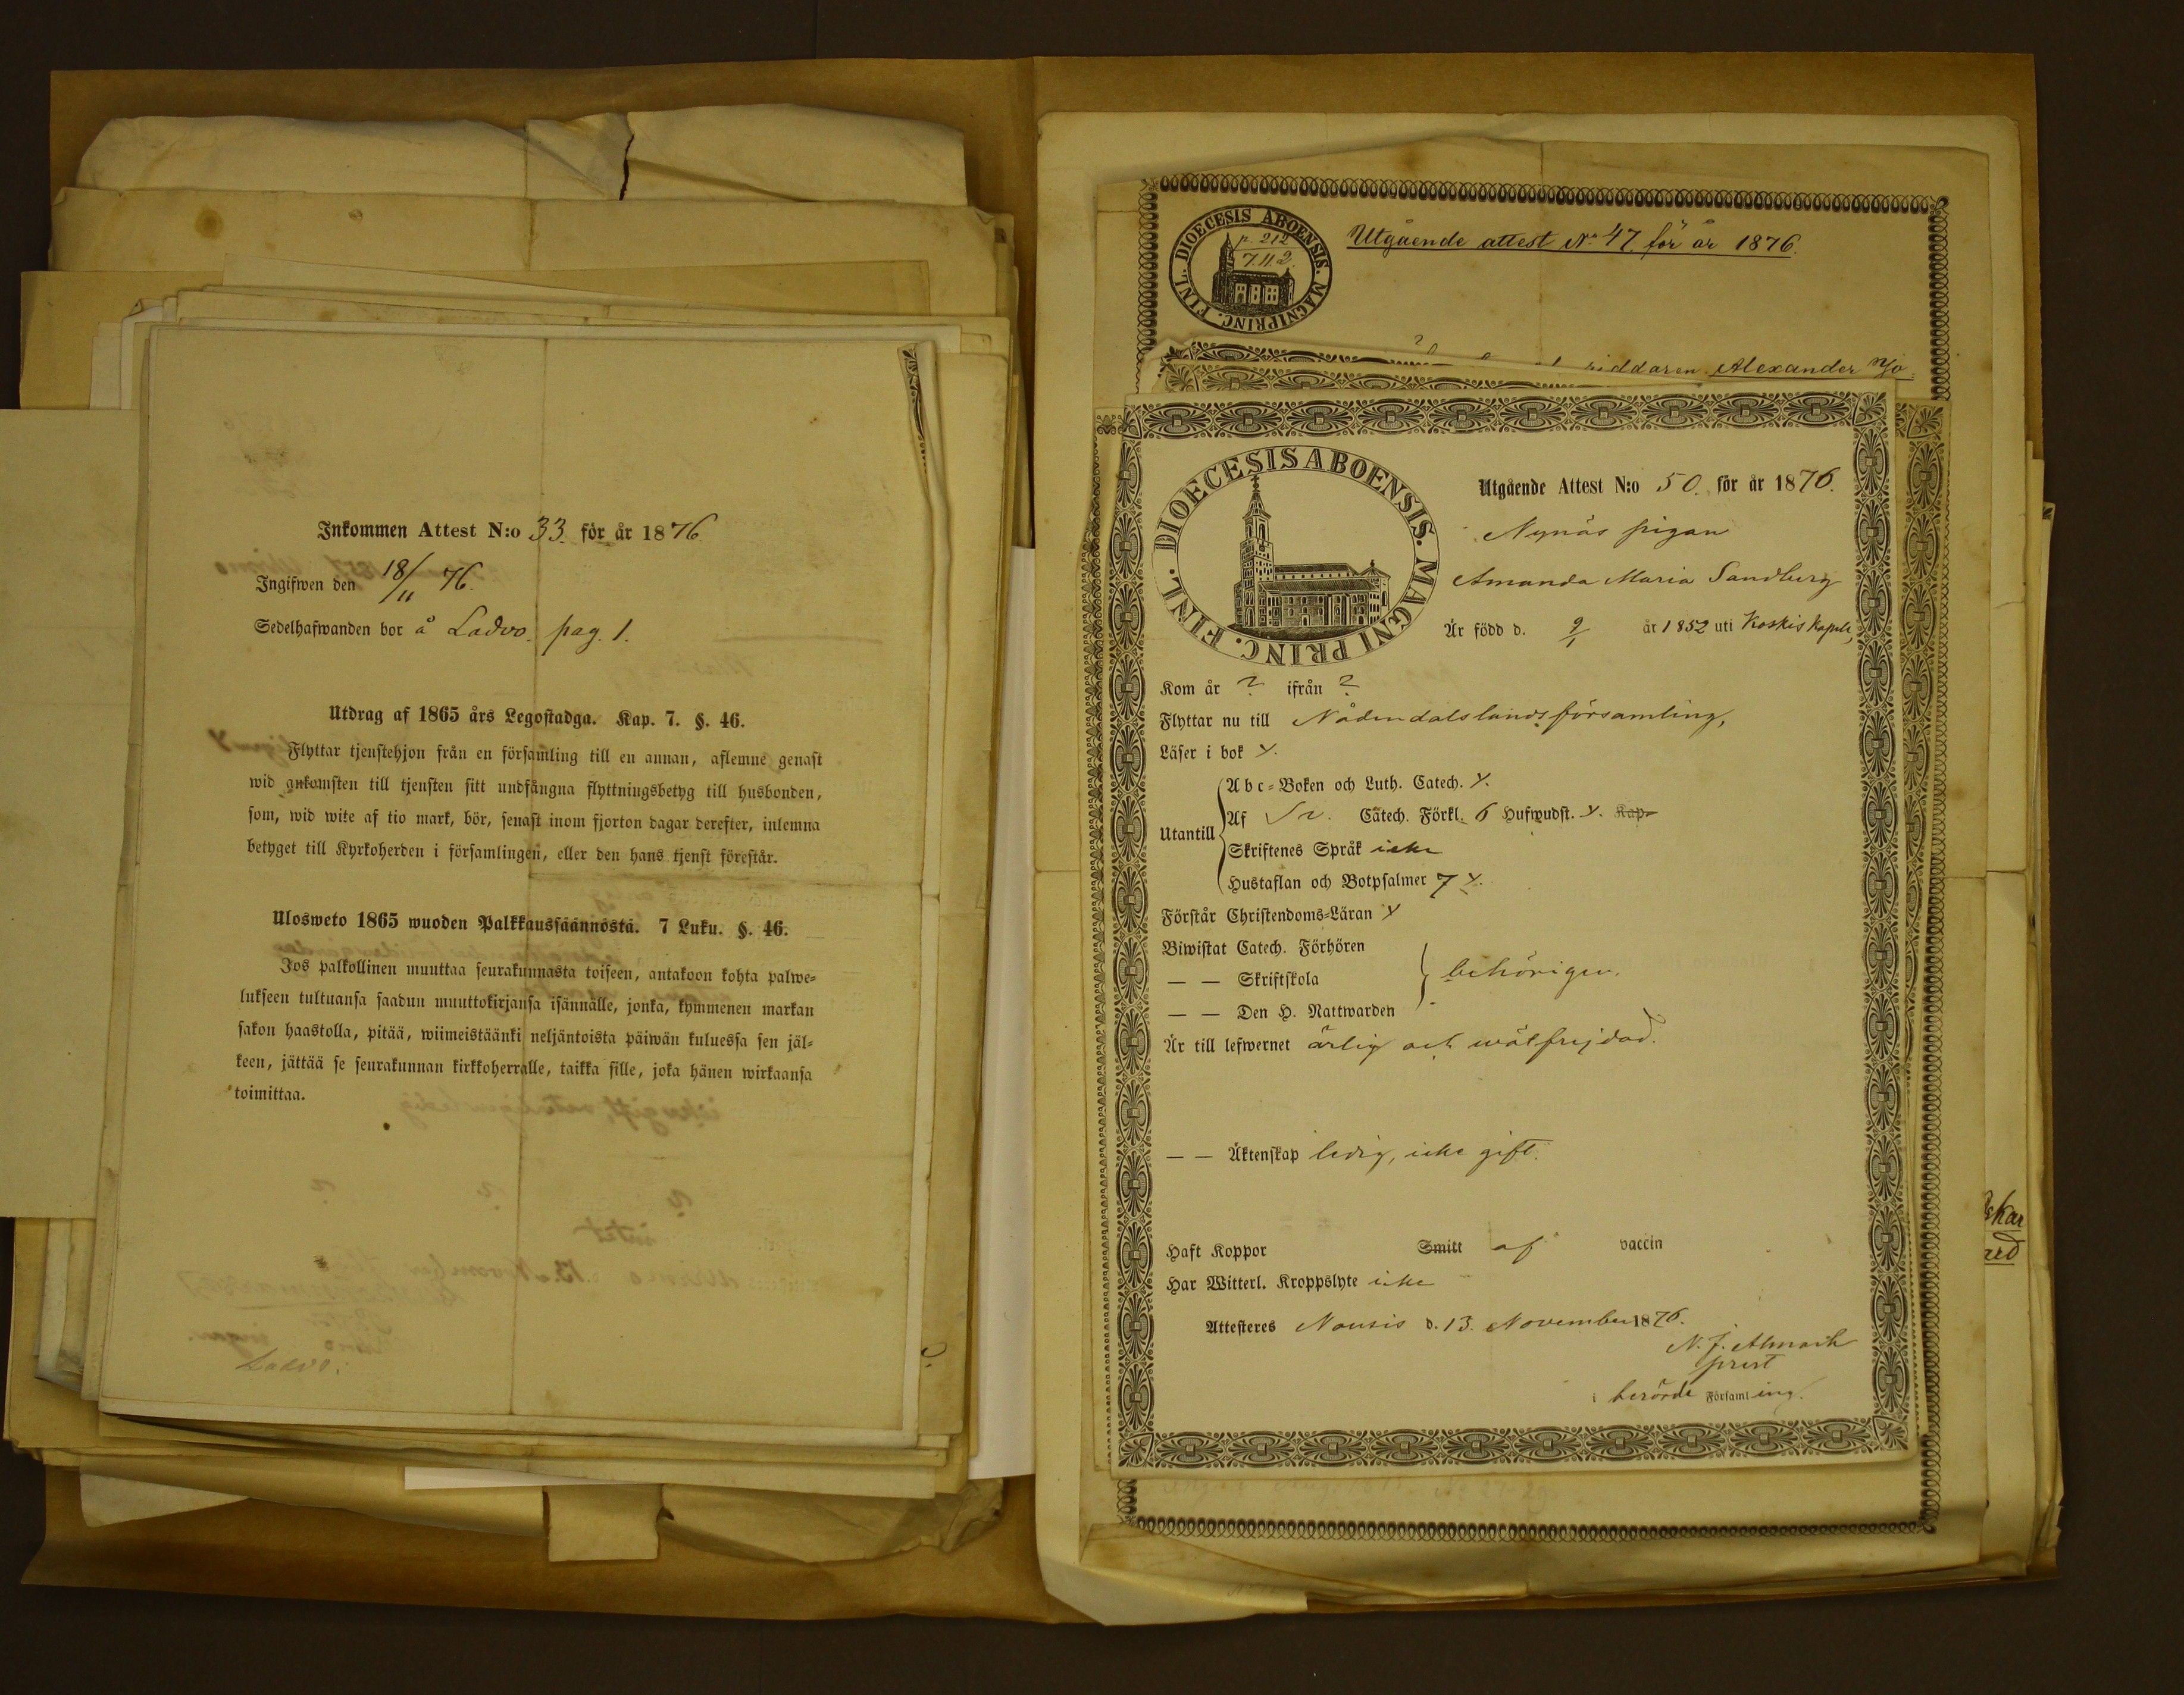 Inkommen Attest N:o 33. för år 1876
Ingifwen den 18/11 76.
Sedelhafwanden bor å Ladvo. pag. 1.
Utdrag af 1865 års Legostadga. Kap. 7. §. 46.
Flyttar tjenstehjon från en församling till en annan, aflemne genast
wid ankomsten till tjensten sitt undfångna flyttningsbetyg till husbonden,
som, wid wite af tio mark, bör, senast inom fjorton dagar derefter, inlemna
betyget till Kyrkoherden i församlingen, eller den hans tjenst förestår.
Ulosweto 1865 wuoden Palkkaussäännöstä. 7 Luku. §. 46.
Jos palkollinen muuttaa seurakunnasta toiseen, antakoon kohta palwe-
lukseen tultuansa saadun muuttokirjansa isännälle, jonka, kymmenen markan
sakon haastolla, pitää, wiimeistäänki neljäntoista päiwän kuluessa sen jäl-
keen, jättää se seurakunnan kirkkoherralle, taikka sille, joka hänen wirkaansa
toimittaa.
Ladvo.
DIOECESIS ABOENSIS. MAGNI PRINC. FINL.
p. 212
7.11.2.
Utgående attest No 47. för år 1876.
riddaren Alexander
DIOECESIS ABOENSIS. MAGNI PRINC. FINL.
Utgående Attest N:o 50. för år 1876.
Nynäs pigan
Amanda Maria Sandberg
Är född d. 9/1 år 1852 uti Koskis Kapell,
Kom år ? ifrån ?
Flyttar nu till Nådendals landsförsamling,
Läser i bok x.
Utantill
Abc-Boken och Luth. Catech. x.
Af Sv. Catech. Förkl. 6 Hufwudst. x. Kap.
Skriftenes Språk icke
Hustaflan och Botpsalmer 7 x.
Förstår Christendoms-Läran x
Biwistat Catech. Förhören
— — Skriftskola
behörigen.
— — Den H. Nattwarden
Är till lefwernet ärlig och wälfrejdad.
— — Äktenskap ledig, icke gift.
Haft Koppor Smitt af vaccin
Har Witterl. Kroppslyte icke
Attesteres Nousis d. 13. November 1876.
N. J.
prest
i berörde Församling.